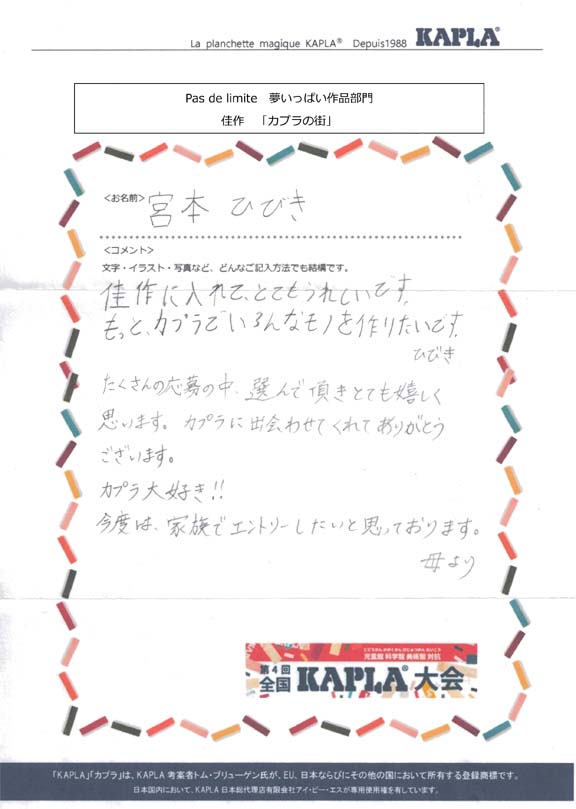 La planchette magique KAPLA® Depuis1988 KAPLA®
Pas de limite 夢いっぱい作品部門
佳作 「カプラの街」
<お名前> 宮本 ひびき
<コメント>
文字・イラスト・写真など、どんなご記入方法でも結構です。
佳作に入れて、とてもうれしいです。
もっと、カプラでいろんなモノを作りたいです。
ひびき
たくさんの応募の中、選んで頂きとても嬉しく
思います。カプラに出会わせてくれてありがとう
ございます。
カプラ大好き!!
今度は、家族でエントリーしたいと思っております。
母より
児童館 科学館 美術館 対抗
第4回
全国 KAPLA® 大会
「KAPLA」「カプラ」は、KAPLA 考案者トム・ブリューゲン氏が、EU、日本ならびにその他の国において所有する登録商標です。
日本国内において、KAPLA 日本総代理店有限会社アイ・ピー・エスが専用使用権を有しています。